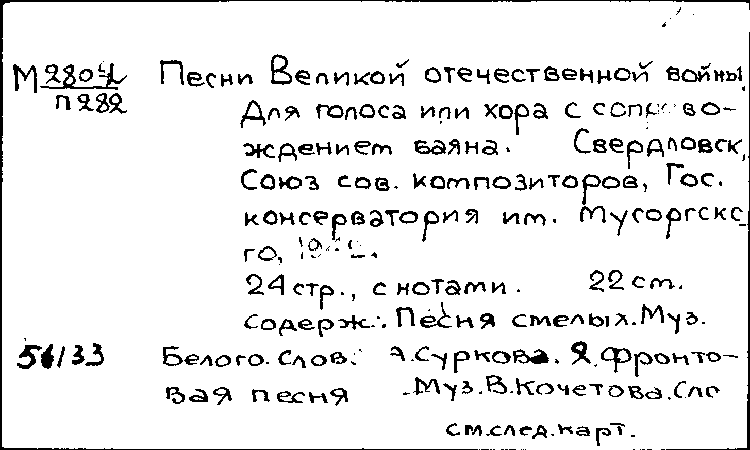 Песни Великой отечественной войны.
П282
Для голоса или хора с сопрово-
ждением баяна. Свердловск,
Союз сов. композиторов, Гос.
консерватория им. Мусоргско
го,
24 стр., с нотами. 22 см.
Содерж.: Песня смелых. Муз.
Белого. Слов. А. Суркова. Я. Фронто-
вая песня Муз. В. Кочетова. Сло
см. след. карт.